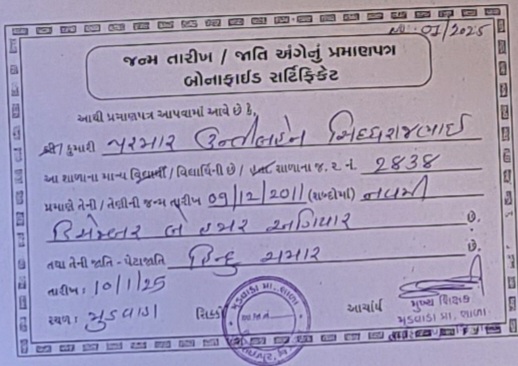 નં. 01/2025
જન્મ તારીખ / જાતિ અંગેનું પ્રમાણપત્ર
બોનાફાઈડ સર્ટિફિકેટ
આથી પ્રમાણપત્ર આપવામાં આવે છે કે,
શ્રી / કુમારી પરમાર ઉન્નતીબહેન સિધ્ધરાજભાઈ
આ શાળાના માન્ય વિદ્યાર્થી / વિદ્યાર્થિની છે / હતા શાળાના જ. ર. નં. 2838
પ્રમાણે તેની / તેણીની જન્મ તારીખ 09/12/2011 (શબ્દોમાં) નવમી
ડિસેમ્બર બે હજાર અગિયાર છે.
તથા તેની જાતિ - પેટાજાતિ હિન્દુ ચમાર છે.
તારીખ : 10/1/25
સ્થળ : મુડવાડા સિક્કો આચાર્ય મુખ્ય શિક્ષક
મુડવાડા પ્રા. શાળા